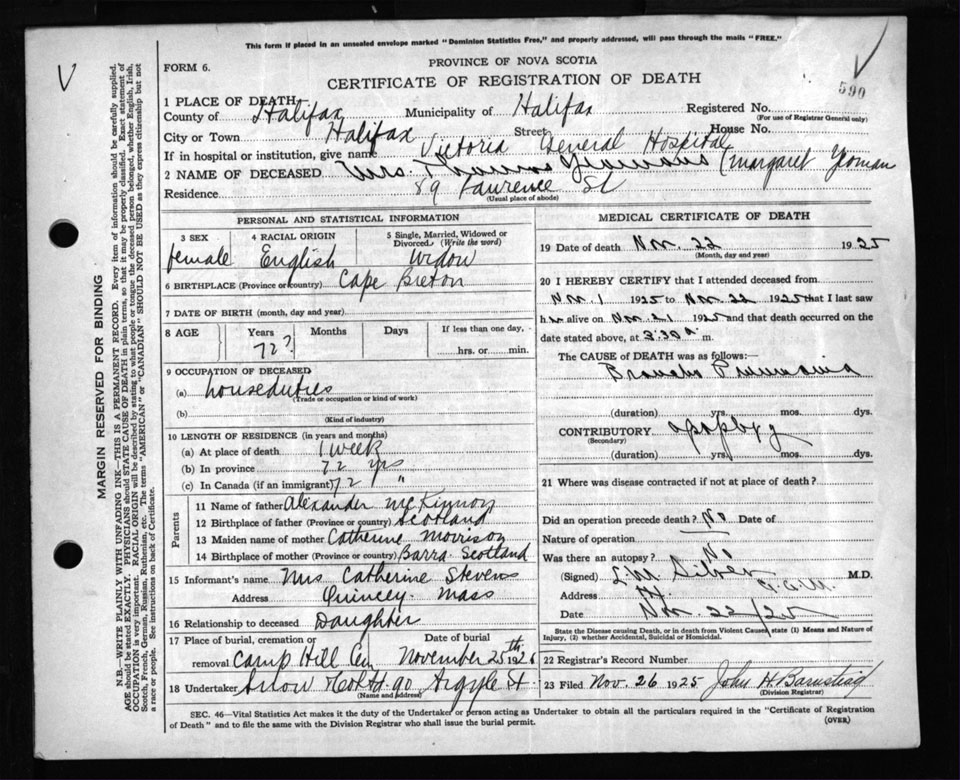 This form if placed in an unsealed envelope marked "Dominion Statistics Free," and properly addressed, will pass through the mails "FREE."
PROVINCE OF NOVA SCOTIA
FORM 6.
CERTIFICATE OF REGISTRATION OF DEATH
590
1 PLACE OF DEATH
County of Halifax Municipality of Halifax Registered No.
(For use of Registrar General only)
City or Town Halifax Street House No.
If in hospital or institution, give name Victoria General Hospital
2 NAME OF DECEASED Mrs. Thomas Yeomans (Margaret Yeoman
Residence 89 Lawrence St
(Usual place of abode)
PERSONAL AND STATISTICAL INFORMATION
3 SEX 4 RACIAL ORIGIN 5 Single, Married, Widowed or Divorced (Write the word)
female English Widow
6 BIRTHPLACE (Province or country) Cape Breton
7 DATE OF BIRTH (month, day and year)
8 AGE Years Months Days If less than one day,
72? hrs. or min.
9 OCCUPATION OF DECEASED
(a) houseduties
(Trade or occupation or kind of work)
(b)
(Kind of industry)
10 LENGTH OF RESIDENCE (in years and months)
(a) At place of death 1 week
(b) In province 72 yrs
(c) In Canada (if an immigrant) 72 "
Parents
11 Name of father Alexander McKinnon
12 Birthplace of father (Province or country) Scotland
13 Maiden name of mother Catherine Morrison
14 Birthplace of mother (Province or country) Barra Scotland
15 Informant's name Mrs Catherine Stevens
Address Quincey Mass
16 Relationship to deceased Daughter
17 Place of burial, cremation or Date of burial
removal Camp Hill Cem November 25th 192
18 Undertaker Snow & Co Ltd. 90 Argyle St.
(Name and Address)
MEDICAL CERTIFICATE OF DEATH
19 Date of death Nov. 22 1925
(Month, day and year)
20 I HEREBY CERTIFY that I attended deceased from
Nov 1 1925 to Nov 22 1925 that I last saw
her alive on Nov 21 1925 and that death occurred on
date stated above, at 2:30 a m.
The CAUSE of DEATH was as follows:
Broncho Pneumonia
(duration) yrs. mos. dys.
CONTRIBUTORY apoplexy
(Secondary)
(duration) yrs. mos. dys.
21 Where was disease contracted if not at place of death?
Did an operation precede death? No Date of
Nature of operation
Was there an autopsy? No
(Signed) L M Silver M.D.
Address
Date Nov 22/25
State the Disease causing Death, or in death from Violent Causes, state (1) Means and Nature of Injury, (2) whether Accidental, Suicidal or Homicidal.
22 Registrar's Record Number
23 Filed Nov. 26 1925 John H.
(Division Registrar)
SEC. 46—Vital Statistics Act makes it the duty of the Undertaker or person acting as Undertaker to obtain all the particulars required in the "Certificate of Registration
of Death" and to file the same with the Division Registrar who shall issue the burial permit. (OVER)
MARGIN RESERVED FOR BINDING
N.B.—WRITE PLAINLY WITH UNFADING INK—THIS IS A PERMANENT RECORD. Every item of information should be carefully supplied.
AGE should be stated EXACTLY. PHYSICIANS should STATE CAUSE OF DEATH in plain terms, so that it may be properly classified. Exact statement of
OCCUPATION is very important. RACIAL ORIGIN will be described by stating to what people or tongue the deceased person belonged, whether English, Irish,
Scotch, French, German, Russian, Ruthenian, etc. The terms "AMERICAN" or "CANADIAN" SHOULD NOT BE USED as they express citizenship but not
a race or people. See instructions on back of Certificate.